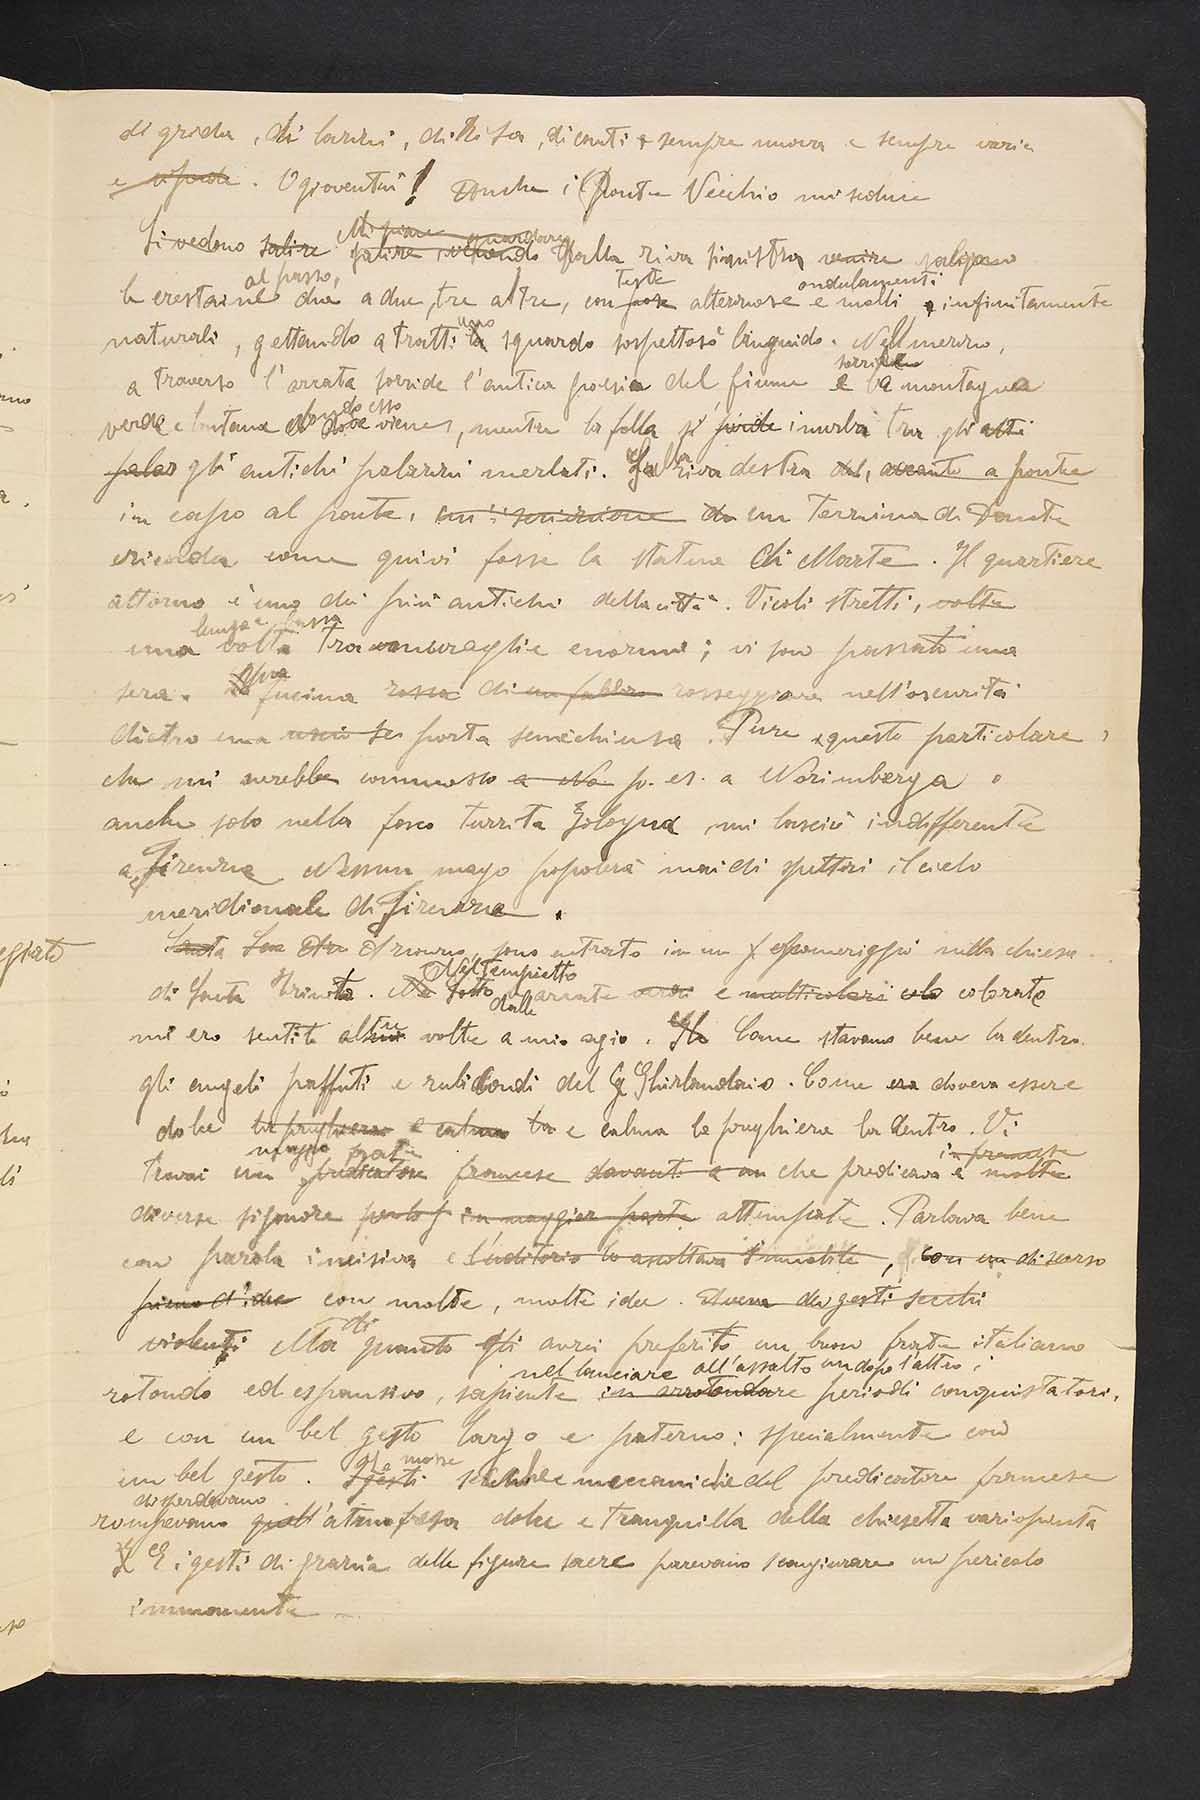 di grida, di lazzi, di risa, di canti e sempre nuova e sempre varia
e . O gioventù! Anche il Ponte Vecchio mi seduce
Mi piace guardare
Si vedono salire salire dalla riva sinistra venire salgono
al passo, teste ondulamenti
le crestaine due a due, tre a tre, con pose alterose e molli, infinitamente
uno
naturali, gettando a tratti la sguardo sospettoso languido. Nel mezzo,
sorride
a traverso l'arcata sorride l'antica poesia del fiume e la montagna
donde esso
verde e lontana dove viene, mentre la folla si perde inurba tra gli alti
palaz gli antichi palazzi merlati. La riva destra del, avanti a ponte
in capo al ponte, un'iscrizione da un Terzina di Dante
ricorda come quivi fosse la statua di Marte. Il quartiere
attorno è uno dei più antichi della città. Vicoli stretti, volte
lunga e bassa
una volta tra muraglie enormi; vi son passato una
sera. Una fucina rossa di un fabbro rosseggiare nell'oscurità
dietro una uscio se porta semichiusa. Pure questo particolare,
che mi avrebbe commosso a No p. es. a Norimberga o
anche solo nella fosca turrita Bologna, mi lasciò indifferente
a Firenze. Nessun mago popolerà mai di spettri il cielo
meridionale di Firenze.
sono entrato in un pomeriggio nella chiesa
Nel tempietto
di Santa Trinita. Ne sotto arcate varie e multicolori colorate
dalle
mi ero sentito altre volte a mio agio. Come stavano bene la dentro
gli angeli paffuti e rubicondi del G Ghirlandaio. Come era doveva essere
dolce la preghiera e calma la e calma la preghiera la dentro. Vi
frate in fremito
trovai un predicatore francese davanti a un che predicava a molte
diverse signore in maggior parte attempate. Parlava bene
con parola incisiva e l'uditorio lo ascoltava immobile, con un discorso
pieno d'idee con molte, molte idee. Aveva dei gesti secchi
di
violenti Ma quanto gli avrei preferito un buon frate italiano
nel lanciare all'assalto un dopo l'altro i
rotondo ed espansivo, sapiente in arrotondare periodi conquistatori,
e con un bel gesto largo e paterno: specialmente con
Le mosse
un bel gesto. I gesti secche meccaniche del predicatore francese
disperdevano
rompevano quell'atmosfera dolce e tranquilla della chiesetta variopinta
E i gesti di grazia delle figure sacre parevano scongiurare un pericolo
imminente